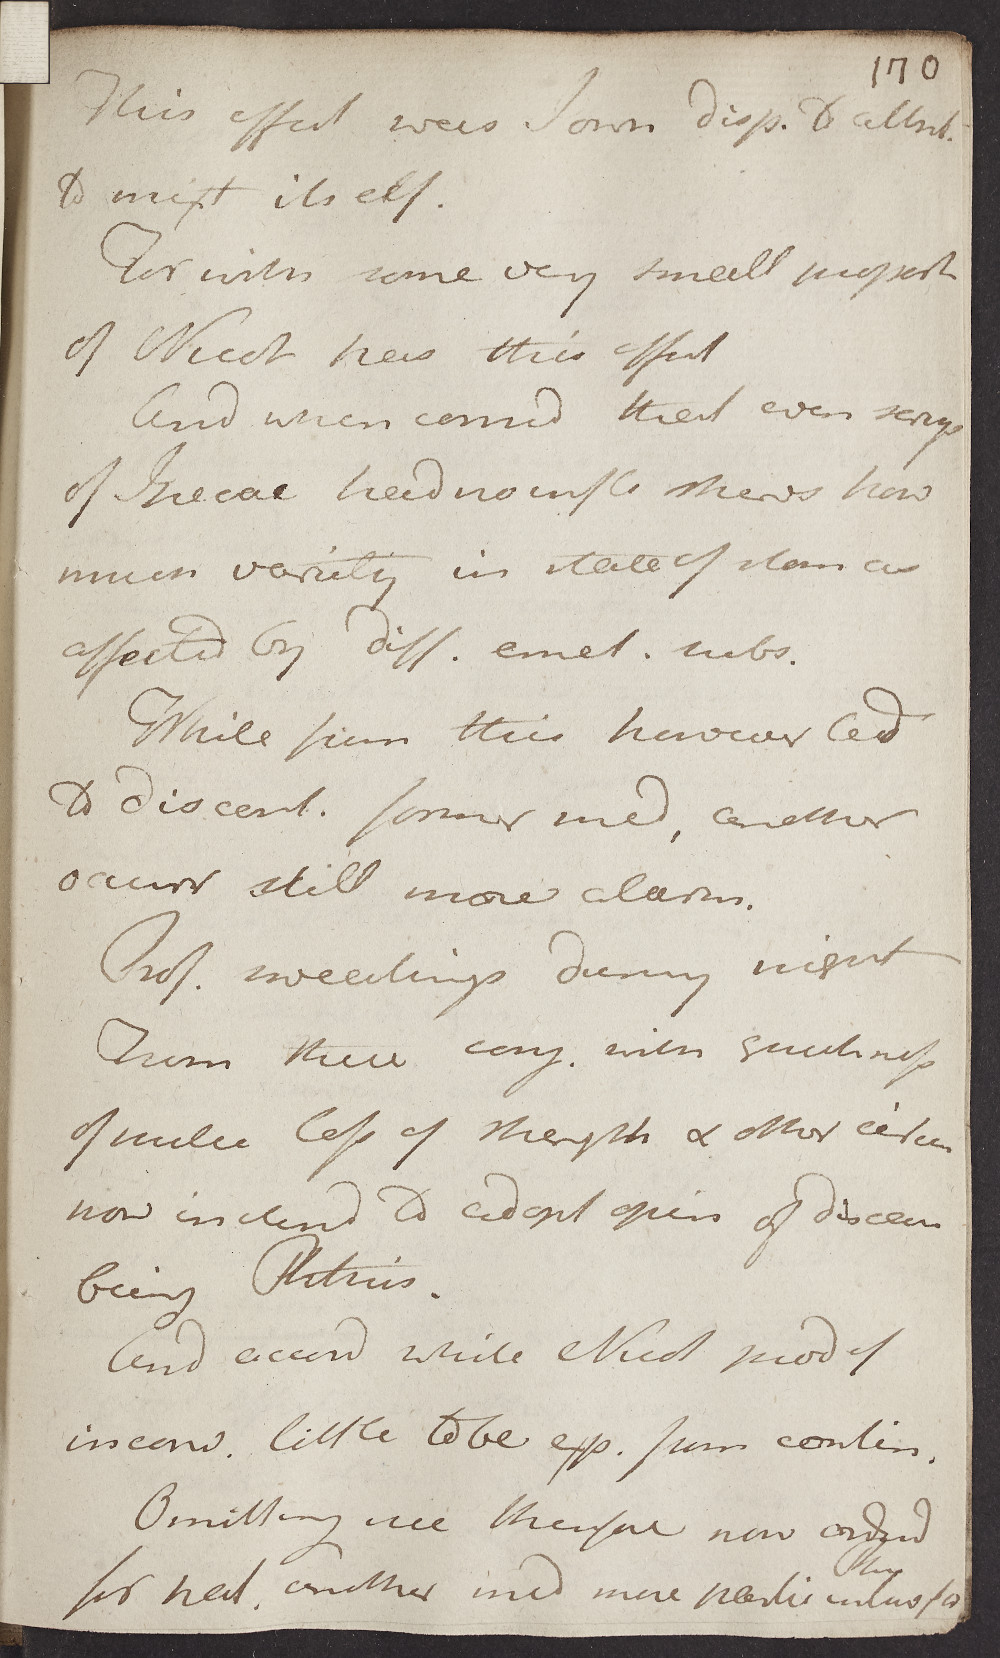 170
This effect was I own disp. to attrib.
to mixt itself.
For with some very small proport
of Nicot has this effect
And when consid that even scrup
of Ipecac had no infle shews how
much variety in state of stom as
affected by diff. emet. subs.
While from this however led
to discont. former med, another
occurr still more alarm.
Prof. sweatings during night
From these conj. with quickness
of pulse loss of strength & other circum
now inclind to adopt opin of disease
being Phthisis.
And accord while Nicot prod of
inconv. little to be exp. from contin.
Omitting use therefore now ordrd
for pat. another med more particular for